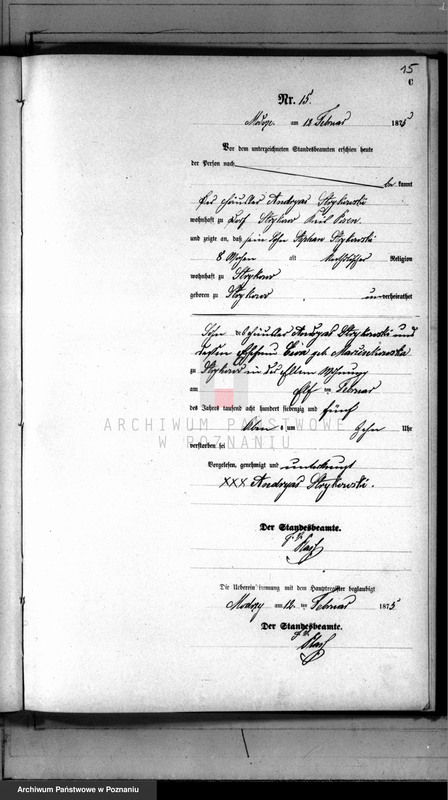 15
C
Nr. 15.
am 12 Februar 1875
Vor dem unterzeichneten Standesbeamten erschien heute
der Person nach
be kannt
der Häusler Andrzeas Strykowski
wohnhaft zu Dorf Strykowo Kreis Posen
und zeigte an, daß sein Sohn Stephan Strykowski
8 Wochen alt katholischer Religion
wohnhaft zu Strykowo
geboren zu Strykowo unverheirathet
Sohn des Häusler Andrzeas Strykowski und
dessen Ehefrau geb Marcinkowska
zu Strykowo in der Eltern Wohnung
am Elf ten Februar
des Jahrs tausend acht hundert siebenzig und fünf
Aben ds um Zehn Uhr
verstorben sei
Vorgelesen, genehmigt und unterkreuzt
XXX Andrzeas Strykowski.
Der Standesbeamte.
Die Uebereinstimmung mit dem Hauptregister beglaubigt
am 12 ten Februar 1875
Der Standesbeamte.
ARCHIWUM PAŃSTWOWE
W POZNANIU
Archiwum Państwowe w Poznaniu